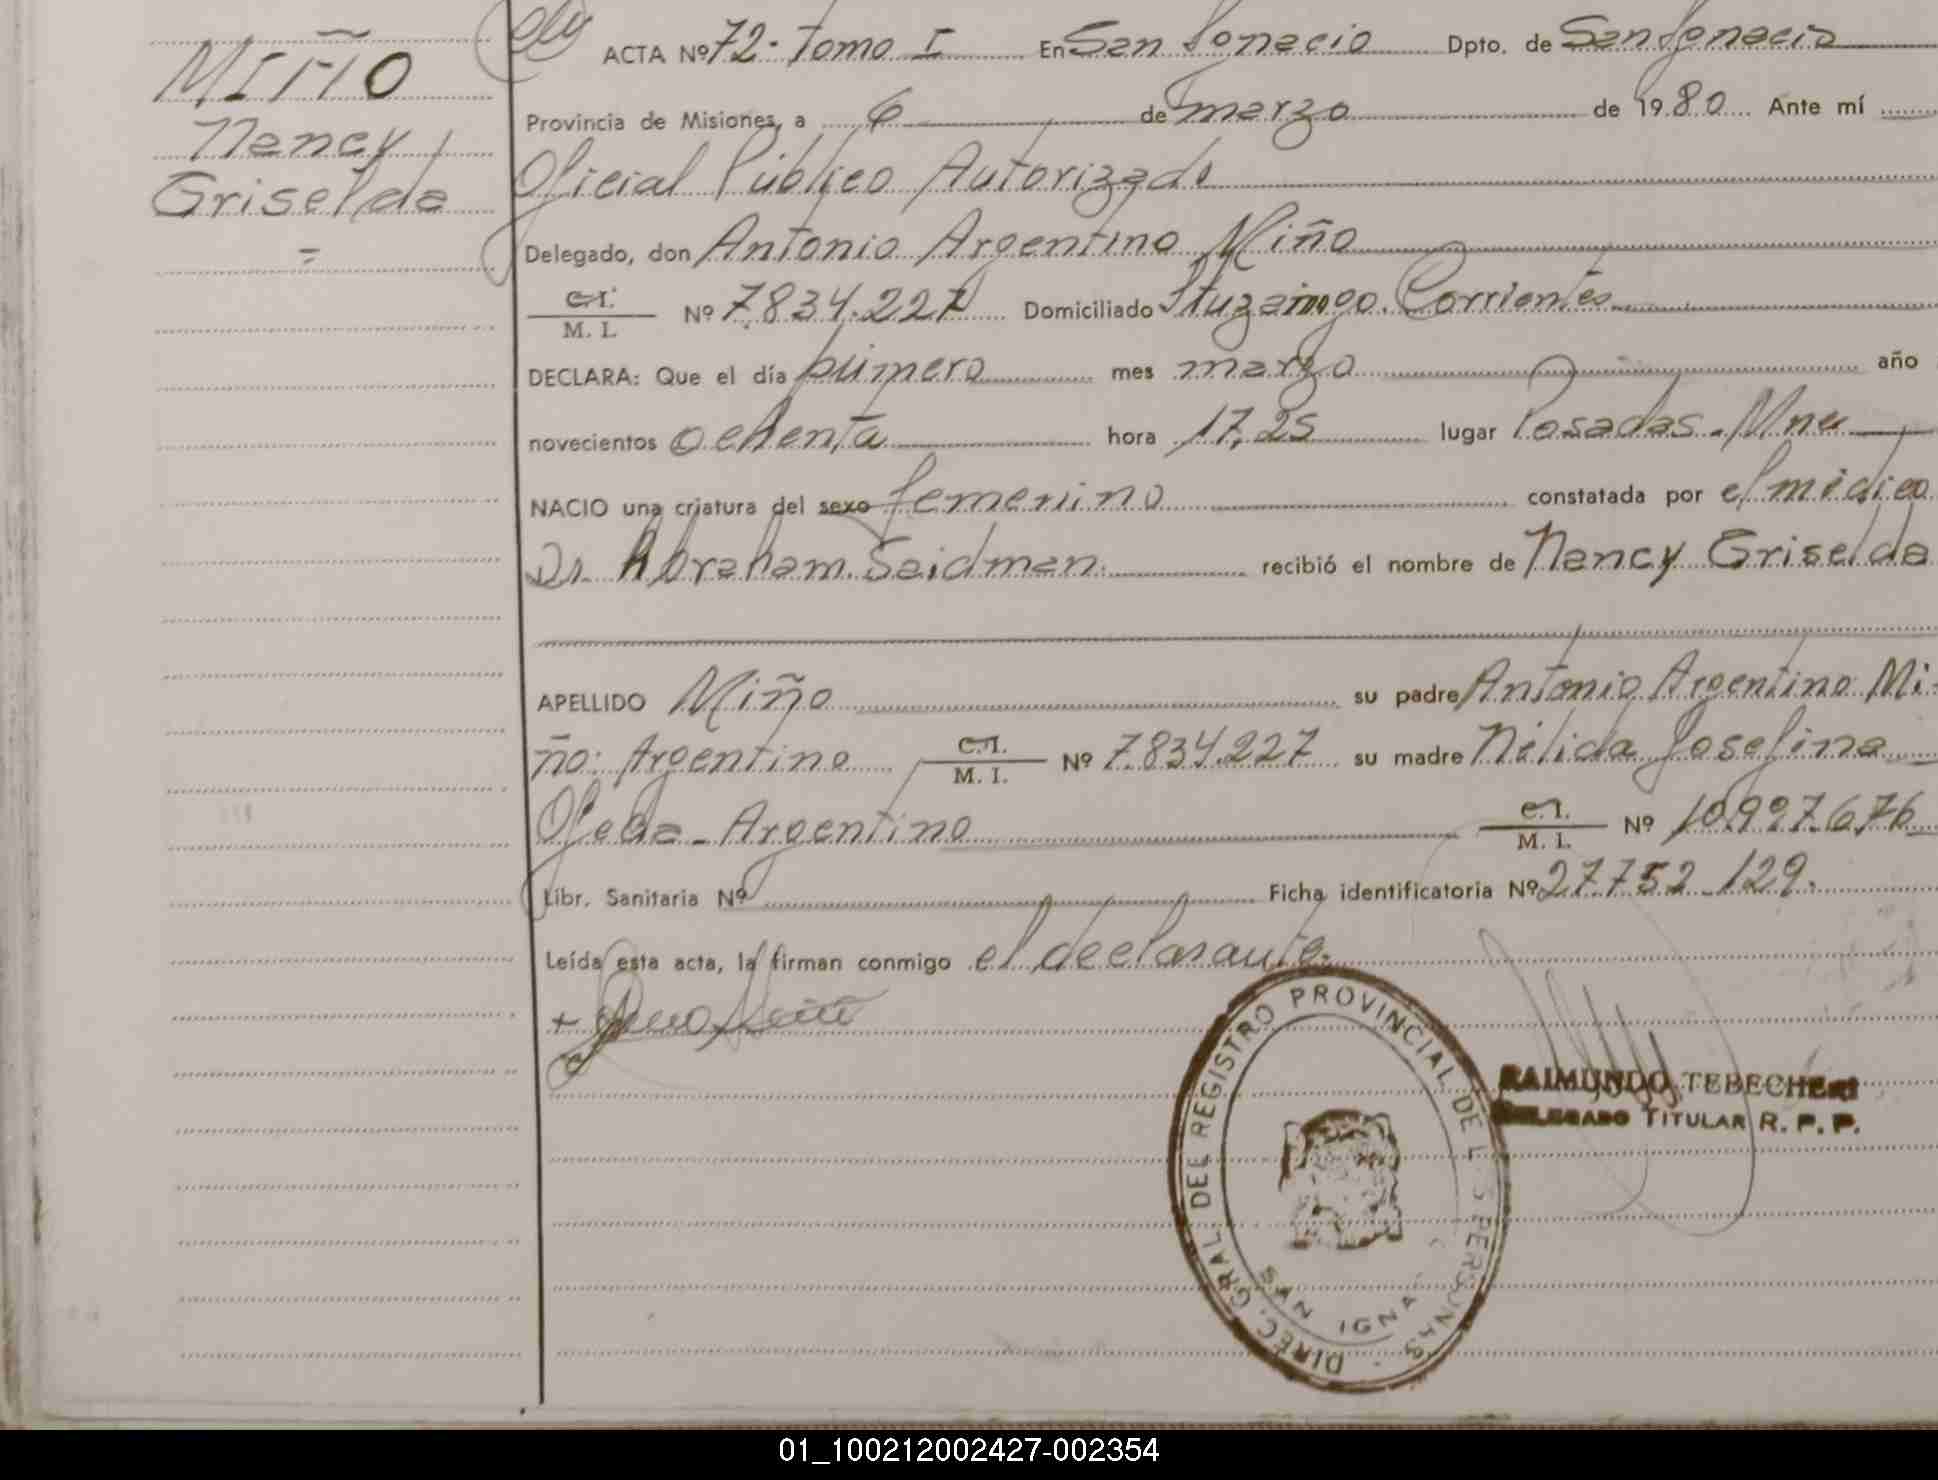 MIÑO
Nancy
Griselda
ACTA Nº 72 - Tomo I En San Ignacio Dpto. de San Ignacio
Provincia de Misiones, a 6 de marzo de 1980 Ante mí
Oficial Público Autorizado
Delegado, don Antonio Argentino Miño
C.I.
M. I. Nº 7.834.227 Domiciliado Ituzaingo. Corrientes
DECLARA: Que el día primero mes marzo año
novecientos ochenta hora 17,25 lugar Posadas - Mnes
NACIO una criatura del sexo femenino constatada por el médico
Dr. Abraham Saidman. recibió el nombre de Nancy Griselda
APELLIDO Miño su padre Antonio Argentino Mi-
ño: Argentino C.I. M. I. Nº 7.834.227 su madre Nélida Josefina
Ojeda - Argentina C.I. M. I. Nº 10.997.676
Libr. Sanitaria Nº Ficha identificatoria Nº 27752 129.
Leída esta acta, la firman conmigo el declarante.
DIREC. GRAL DEL REGISTRO PROVINCIAL DE L S PERSONAS
SAN IGNA
RAIMUNDO TEBECHERI
DELEGADO TITULAR R. P. P.
01_100212002427-002354